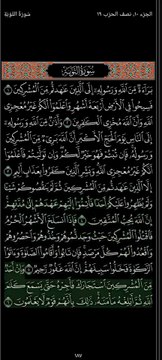 الجزء ١٠، نصف الحزب ١٩
سورة التوبة
سُورَةُ التَّوْبَةِ
بَرَآءَةٌ مِّنَ ٱللَّهِ وَرَسُولِهِۦٓ إِلَى ٱلَّذِينَ عَٰهَدتُّم مِّنَ ٱلْمُشْرِكِينَ ١
فَسِيحُوا۟ فِى ٱلْأَرْضِ أَرْبَعَةَ أَشْهُرٍ وَٱعْلَمُوٓا۟ أَنَّكُمْ غَيْرُ مُعْجِزِى
ٱللَّهِ وَأَنَّ ٱللَّهَ مُخْزِى ٱلْكَٰفِرِينَ ٢ وَأَذَٰنٌ مِّنَ ٱللَّهِ وَرَسُولِهِۦٓ
إِلَى ٱلنَّاسِ يَوْمَ ٱلْحَجِّ ٱلْأَكْبَرِ أَنَّ ٱللَّهَ بَرِىٓءٌ مِّنَ ٱلْمُشْرِكِينَ
وَرَسُولُهُۥ فَإِن تُبْتُمْ فَهُوَ خَيْرٌ لَّكُمْ وَإِن تَوَلَّيْتُمْ فَٱعْلَمُوٓا۟
أَنَّكُمْ غَيْرُ مُعْجِزِى ٱللَّهِ وَبَشِّرِ ٱلَّذِينَ كَفَرُوا۟ بِعَذَابٍ أَلِيمٍ ٣
إِلَّا ٱلَّذِينَ عَٰهَدتُّم مِّنَ ٱلْمُشْرِكِينَ ثُمَّ لَمْ يَنقُصُوكُمْ شَيْـًٔا
وَلَمْ يُظَٰهِرُوا۟ عَلَيْكُمْ أَحَدًا فَأَتِمُّوٓا۟ إِلَيْهِمْ عَهْدَهُمْ إِلَىٰ مُدَّتِهِمْ
إِنَّ ٱللَّهَ يُحِبُّ ٱلْمُتَّقِينَ ٤ فَإِذَا ٱنسَلَخَ ٱلْأَشْهُرُ ٱلْحُرُمُ
فَٱقْتُلُوا۟ ٱلْمُشْرِكِينَ حَيْثُ وَجَدتُّمُوهُمْ وَخُذُوهُمْ وَٱحْصُرُوهُمْ
وَٱقْعُدُوا۟ لَهُمْ كُلَّ مَرْصَدٍ فَإِن تَابُوا۟ وَأَقَامُوا۟ ٱلصَّلَوٰةَ وَءَاتَوُا۟
ٱلزَّكَوٰةَ فَخَلُّوا۟ سَبِيلَهُمْ إِنَّ ٱللَّهَ غَفُورٌ رَّحِيمٌ ٥ وَإِنْ أَحَدٌ
مِّنَ ٱلْمُشْرِكِينَ ٱسْتَجَارَكَ فَأَجِرْهُ حَتَّىٰ يَسْمَعَ كَلَٰمَ
ٱللَّهِ ثُمَّ أَبْلِغْهُ مَأْمَنَهُۥ ذَٰلِكَ بِأَنَّهُمْ قَوْمٌ لَّا يَعْلَمُونَ ٦
١٨٧